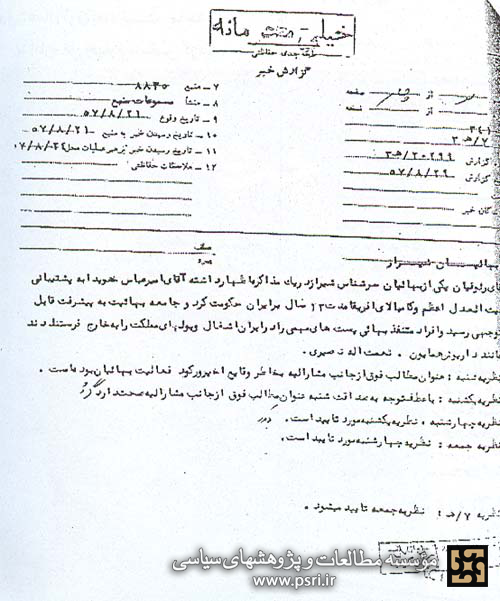 خیلی محرمانه
طبقه بندی حفاظتی
گزارش خبر
۷ ــ منبع ۸۸۳۵
۸ ــ منشأ مسموعات منبع
۹ ــ تاریخ وقوع ۵۷/۸/۲۱
۱۰ ــ تاریخ رسیدن خبر به منبع ۵۷/۸/۲۱
۱۱ ــ تاریخ رسیدن خبر به رهبر عملیات محل
۱۲ ــ ملاحظات حفاظتی
از صفحه
از نسخه
۷/هـ ۳
گزارش ۲۰۲۹۹/هـ۳
گزارش ۵۷/۸/۲۹
گان خبر
بهائیان شیراز
یکی از بهائیان سرشناس شیراز در یک مذاکره اظهار داشته آقای امیرعباس هویدا به پشتیبانی
بیت العدل اعظم و کامپالای افریقا مدت ۱۳ سال بر ایران حکومت کرد و جامعه بهائیت به پیشرفت قابل
توجهی رسید و افراد متنفذ بهائی پست های مهمی را در ایران اشغال و پولهای مملکت را به خارج فرستادند
مانند داریوش همایون . نعمت اله نصیری .
نظریه شنبه : عنوان مطالب فوق از جانب مشارالیه بخاطر وقایع اخیر و رکود فعالیت بهائیان بوده است .
نظریه یکشنبه : با عطف توجه به صداقت شنبه عنوان مطالب فوق از جانب مشارالیه صحت دارد
نظریه چهارشنبه . نظریه یکشنبه مورد تایید است .
نظریه جمعه : نظریه چهارشنبه مورد تایید است .
نظریه ۷/هـ : نظریه جمعه تایید میشود .
موسسه مطالعات و پژوهشهای سیاسی
www.psri.ir